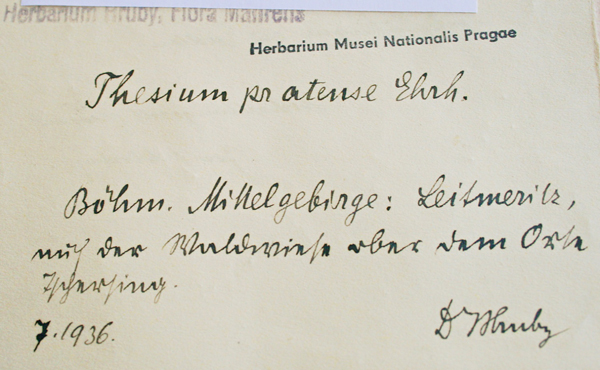 Herbarium Hruby, Flora Mährens
Herbarium Musei Nationalis Pragae
Thesium pratense Ehrh.
Böhm. Mittelgebirge: Leitmeritz,
auf der Waldwiese ober dem Orte
Tschersing.
7.1936.
Dr Hruby